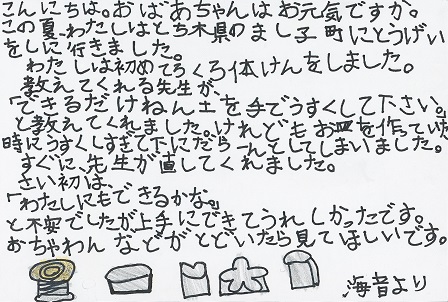 こんにちは。おばあちゃんはお元気ですか。
この夏、わたしはとち木県のまし子町にとうげい
をしに行きました。
わたしは初めてろくろ体けんをしました。
教えてくれる先生が、
「できるだけねん土を手でうすくして下さい。」
と教えてくれました。けれどもお皿を作っていた
時にうすくしすぎて下にだらーんとしてしまいました。
すぐに、先生が直してくれました。
さい初は、
「わたしにもできるかな。」
と不安でしたが上手にできてうれしかったです。
おちゃわんなどがとどいたら見てほしいです。
海音より